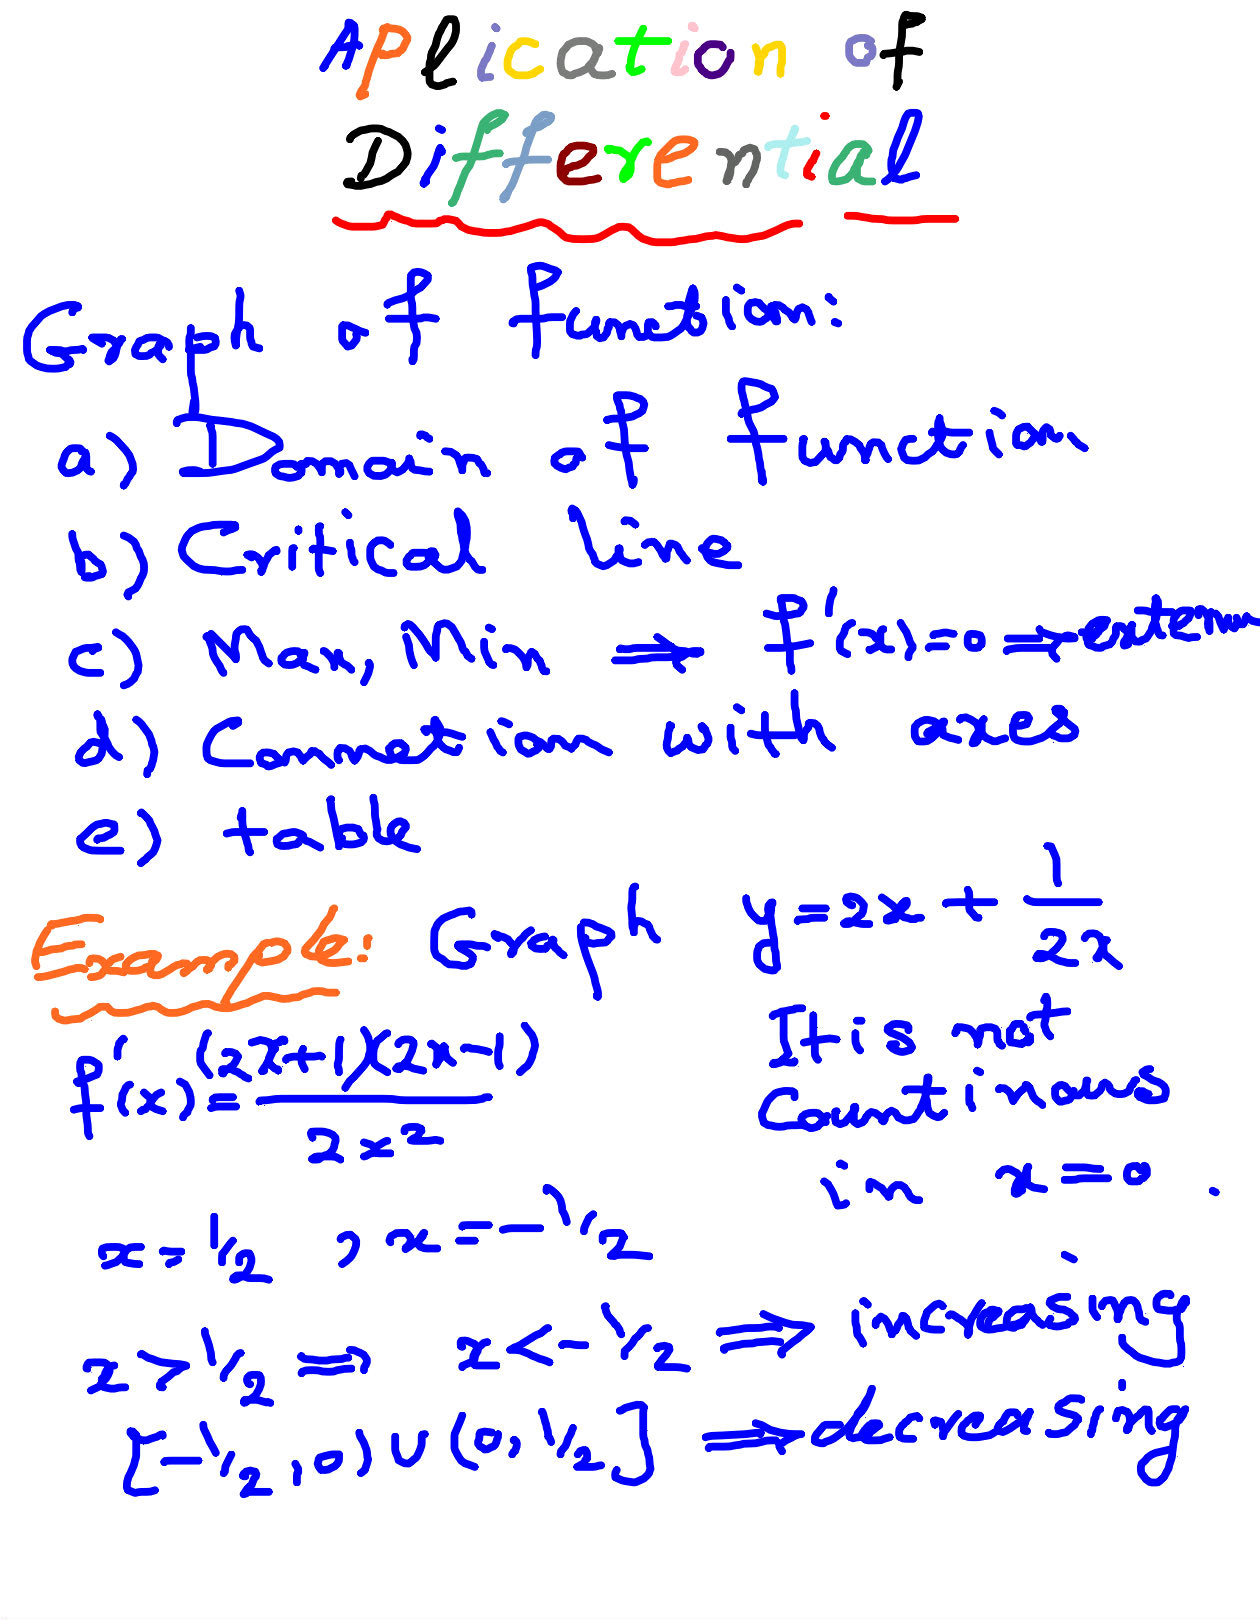 Aplication of
Differential
Graph of function:
a) Domain of function
b) Critical line
c) Max, Min ⇒ f'(x)=0 ⇒ extem
d) Connetion with axes
e) table
Example: Graph y=2x + 1/2x
f'(x)= (2x+1)(2x-1)/2x² It is not
Countinous
in x=0 .
x = 1/2 , x = -1/2
x > 1/2 ⇒ x < -1/2 ⇒ increasing
[-1/2, 0) ∪ (0, 1/2] ⇒ decreasing